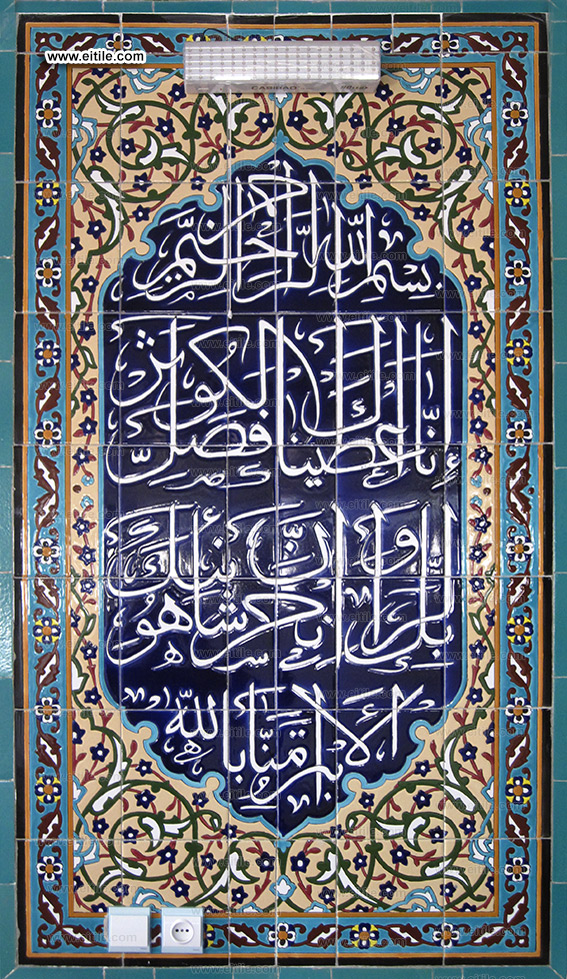 www.eitile.com
بسم الله الرحمن الرحيم
إنا أعطيناك الكوثر فصل
لربك وانحر إن شانئك هو
الأبتر آمنا بالله